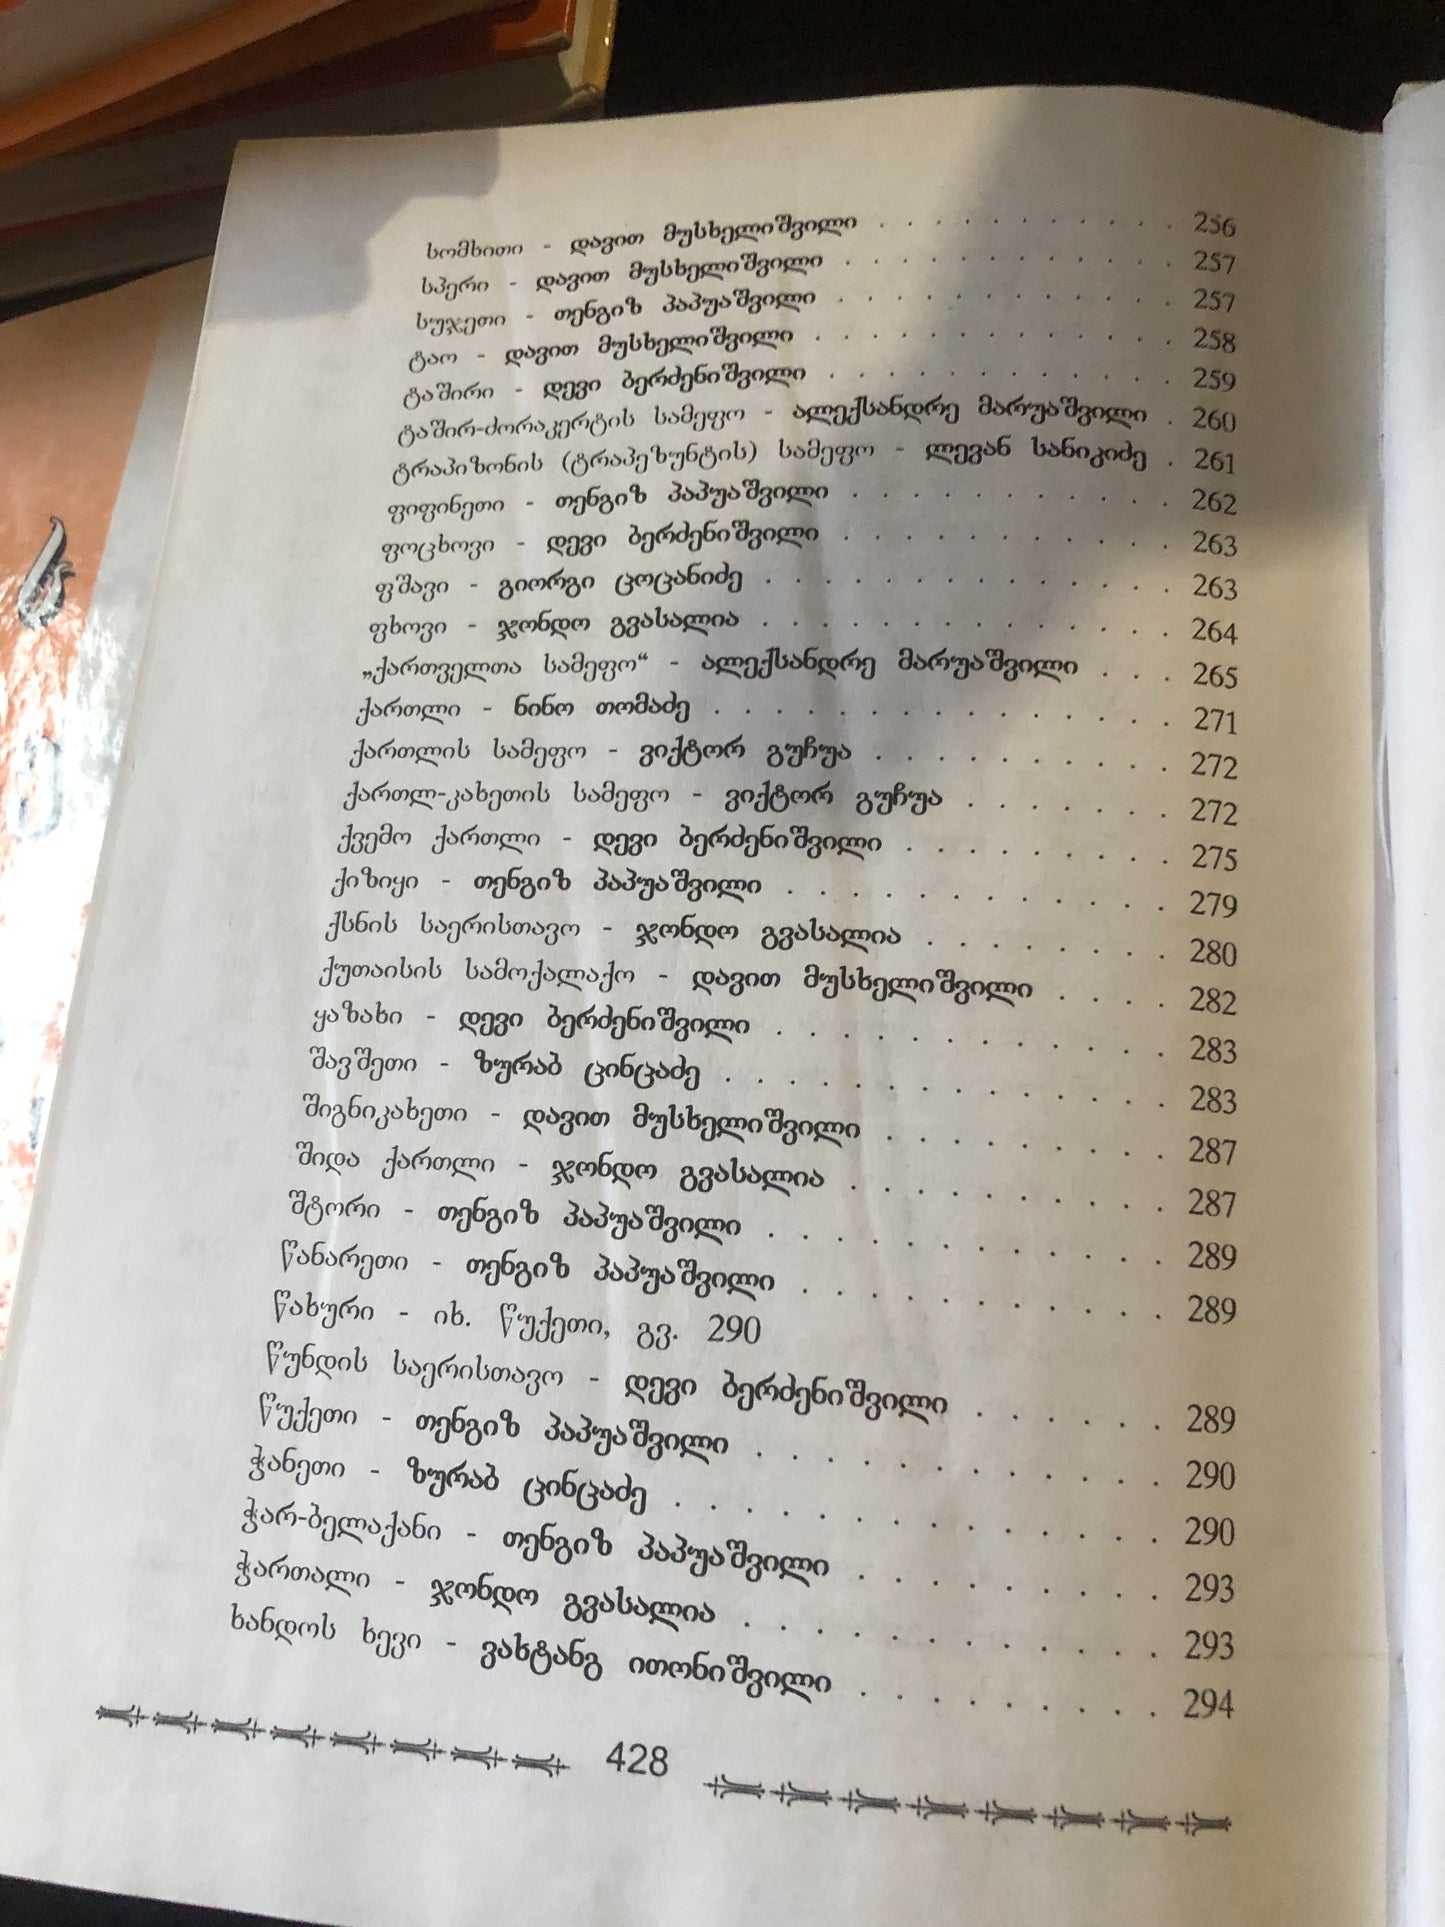 სომხითი - დავით მუსხელიშვილი . . . . . . . . . . . 256
სპერი - დავით მუსხელიშვილი . . . . . . . . . . . . 257
სუჯეთი - თენგიზ პაპუაშვილი . . . . . . . . . . . . 257
ტაო - დავით მუსხელიშვილი . . . . . . . . . . . . . 258
ტაშირი - დევი ბერძენიშვილი . . . . . . . . . . . . 259
ტაშირ-ძორაკერტის სამეფო - ალექსანდრე მარუაშვილი . 260
ტრაპიზონის (ტრაპეზუნტის) სამეფო - ლევან სანიკიძე . 261
ფიფინეთი - თენგიზ პაპუაშვილი . . . . . . . . . . . 262
ფოცხოვი - დევი ბერძენიშვილი . . . . . . . . . . . 263
ფშავი - გიორგი ცოცანიძე . . . . . . . . . . . . . . 263
ფხოვი - ჯონდო გვასალია . . . . . . . . . . . . . . 264
„ქართველთა სამეფო“ - ალექსანდრე მარუაშვილი . . . 265
ქართლი - ნინო თომაძე . . . . . . . . . . . . . . . 271
ქართლის სამეფო - ვიქტორ გუჩუა . . . . . . . . . . 272
ქართლ-კახეთის სამეფო - ვიქტორ გუჩუა . . . . . . . 272
ქვემო ქართლი - დევი ბერძენიშვილი . . . . . . . . . 275
ქიზიყი - თენგიზ პაპუაშვილი . . . . . . . . . . . . 279
ქსნის საერისთავო - ჯონდო გვასალია . . . . . . . . 280
ქუთაისის სამოქალაქო - დავით მუსხელიშვილი . . . . 282
ყაზახი - დევი ბერძენიშვილი . . . . . . . . . . . . 283
შავშეთი - ზურაბ ცინცაძე . . . . . . . . . . . . . . 283
შიგნიკახეთი - დავით მუსხელიშვილი . . . . . . . . . 287
შიდა ქართლი - ჯონდო გვასალია . . . . . . . . . . 287
შტორი - თენგიზ პაპუაშვილი . . . . . . . . . . . . 289
წანარეთი - თენგიზ პაპუაშვილი . . . . . . . . . . . 289
წახური - იხ. წუქეთი, გვ. 290
წუნდის საერისთავო - დევი ბერძენიშვილი . . . . . . 289
წუქეთი - თენგიზ პაპუაშვილი . . . . . . . . . . . . 290
ჭანეთი - ზურაბ ცინცაძე . . . . . . . . . . . . . . 290
ჭარ-ბელაქანი - თენგიზ პაპუაშვილი . . . . . . . . . 293
ჭართალი - ჯონდო გვასალია . . . . . . . . . . . . 293
ხანდოს ხევი - ვახტანგ ითონიშვილი . . . . . . . . . 294
428